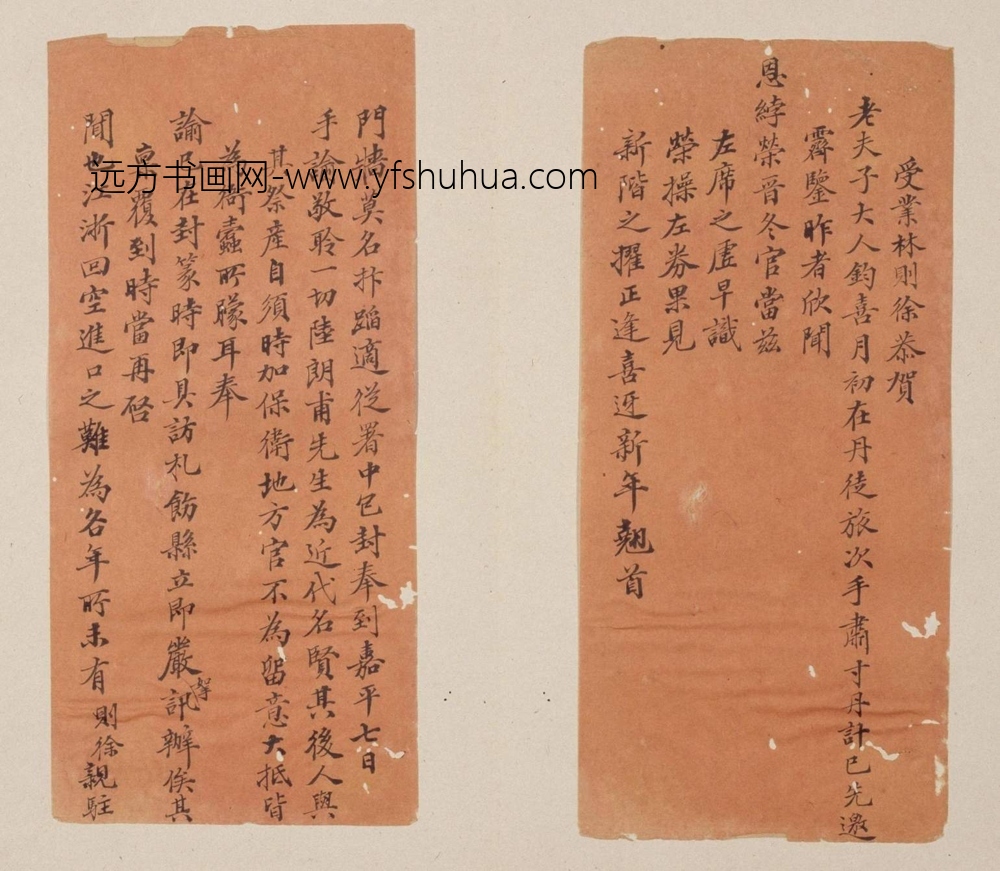 受業林則徐恭賀
老夫子大人鈞喜月初在丹徒旅次手肅寸丹計已先邀
霽鑒昨者欣聞
恩綍榮晉冬官當茲
左席之虛早識
榮操左券果見
新階之擢正逢喜迓新年翹首
門牆莫名抃蹈適從署中包封奉到嘉平七日
手諭敬聆一切陸朗甫先生為近代名賢其後人與
其祭產自須時加保衛地方官不為留意大抵皆
為衙蠹所矇耳奉
諭及在封篆時即具訪札飭縣立即嚴訊辦俟其
稟覆到時當再啓
聞也江浙回空進口之難為各年所未有則徐親駐
远方书画网-www.yfshuhua.com